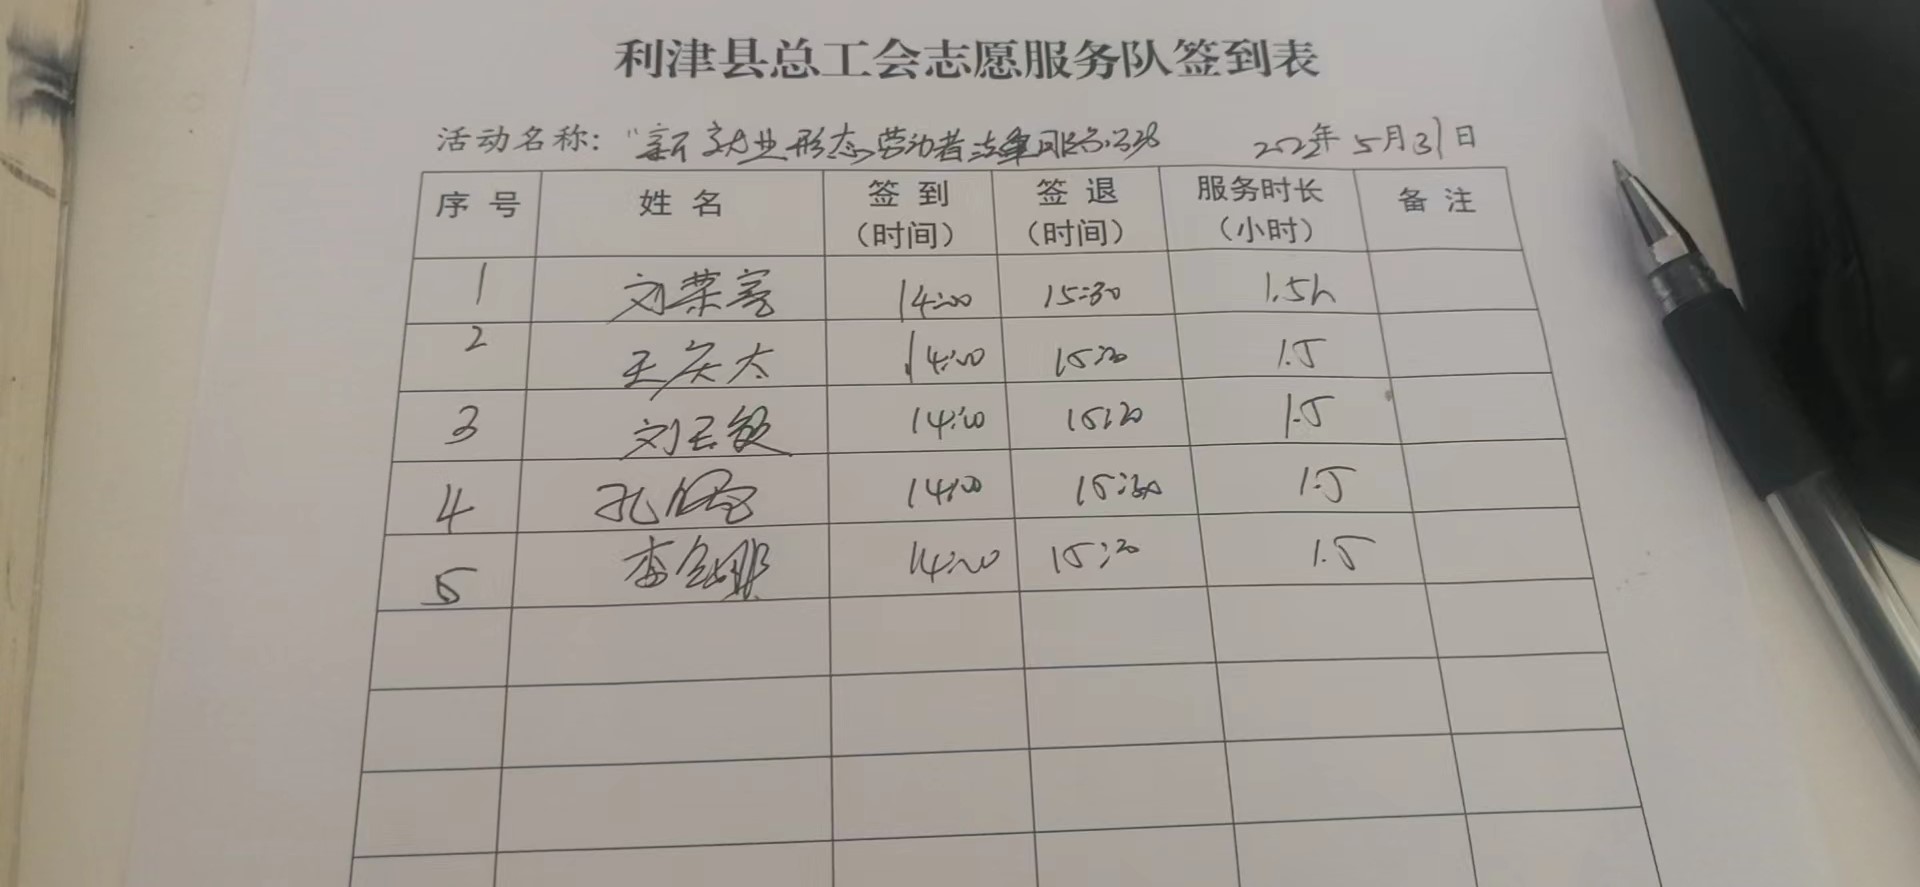 利津县总工会志愿服务队签到表
活动名称：“新就业形态劳动者法律服务 2022年5月31日
序号 姓名 签到（时间） 签退（时间） 服务时长（小时） 备注
1 刘荣亮 14:00 15:30 1.5h
2 王庆大 14:00 15:30 1.5
3 刘玉敏 14:00 15:30 1.5
4 孔 14:00 15:30 1.5
5 李 14:00 15:30 1.5